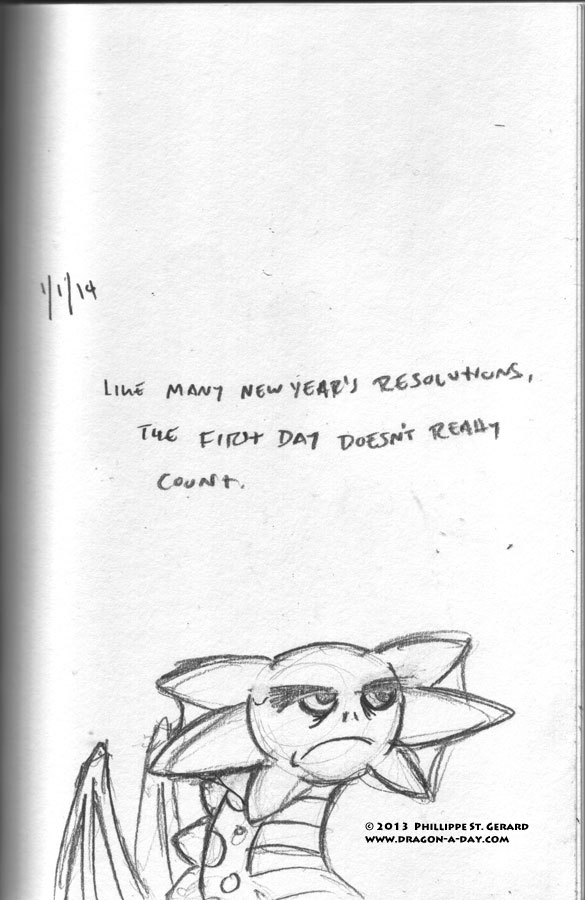 1/1/14
LIKE MANY NEW YEAR'S RESOLUTIONS,
THE FIRST DAY DOESN'T REALLY
COUNT.
© 2013 PHILLIPPE ST. GERARD
WWW.DRAGON-A-DAY.COM